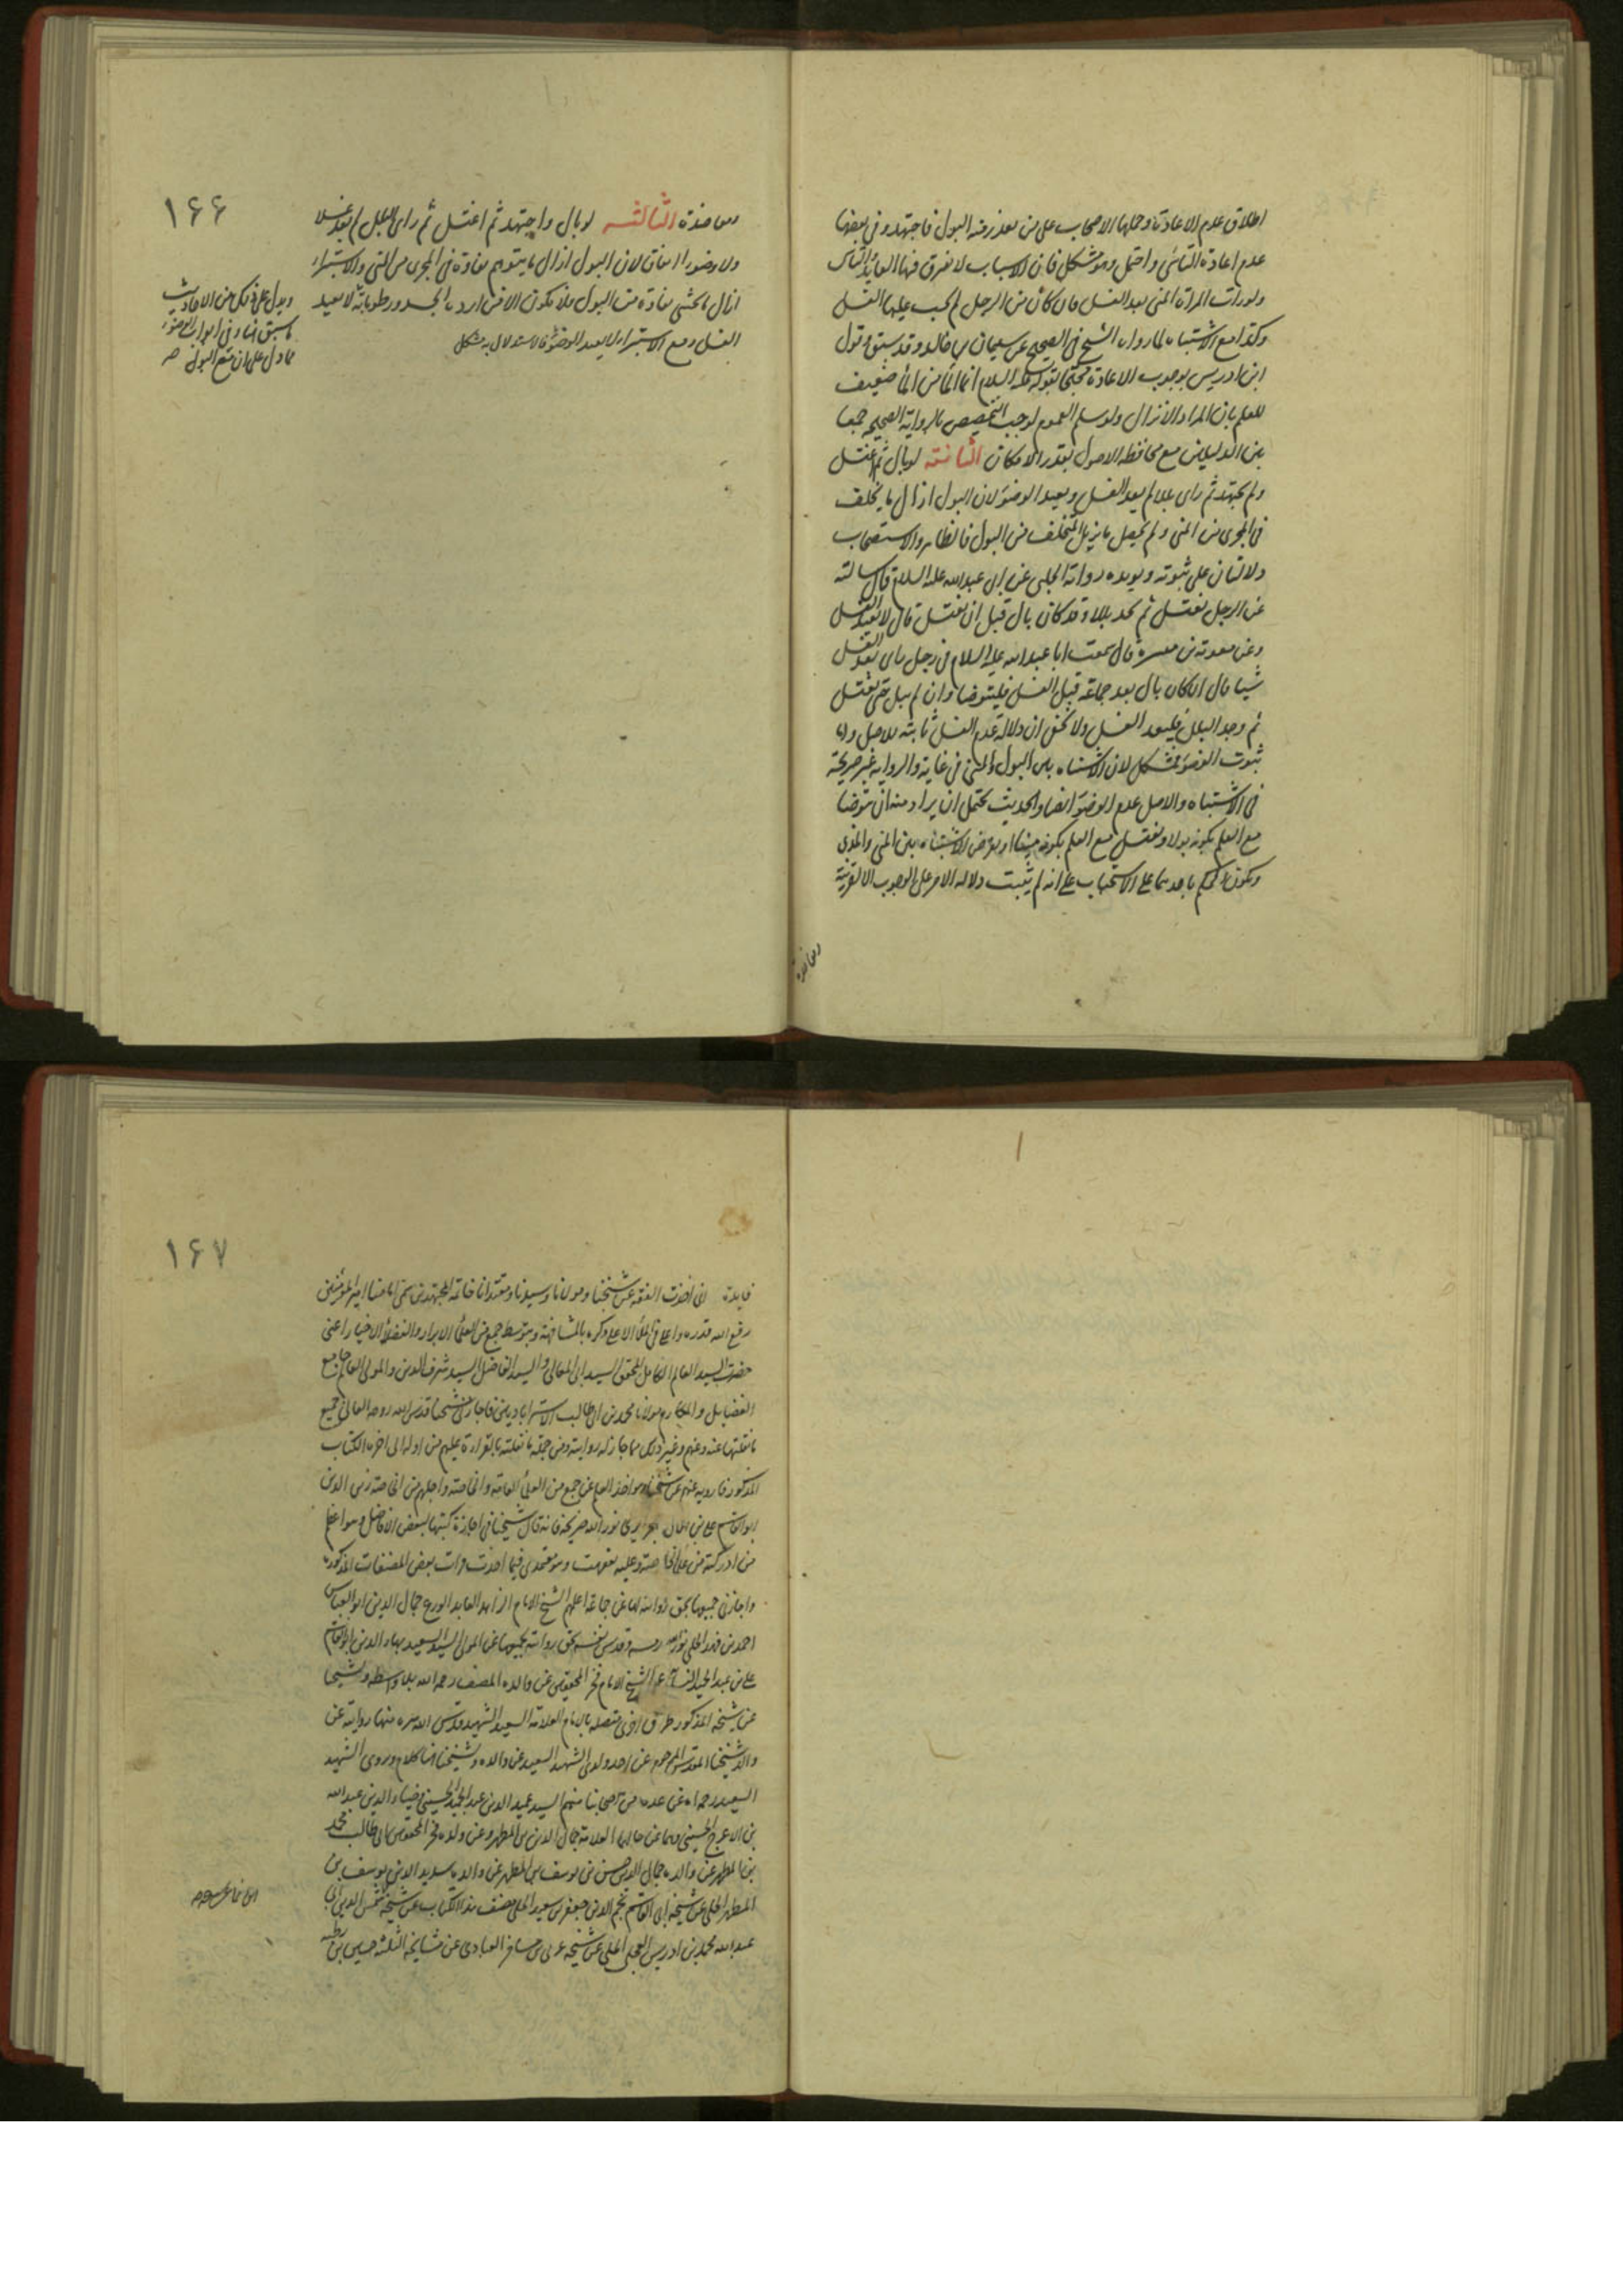 اطلاق عدم الاعادة وحملها الاصحاب على من تعذر منه البول فاجتهد وفى بعضها
عدم اعادة الناسى واحتمل وهو مشكل فان الاسباب لا يفرق فيها العايد والناسى
ولو رات المراة المنى بعد الغسل فان كان من الرجل لم يجب عليها الغسل
وكذا مع الاشتباه لما رواه الشيخ فى الصحيح عن سليمان بن خالد وقد سبق وقول
ابن ادريس بوجوب الاعادة محتجا بقوله عليه السلام انما الماء من الماء ضعيف
للعلم بان المراد الانزال ولو سلم العموم لوجب التخصيص بالرواية الصحيحة جمعا
بين الدليلين مع محافظة الاصول بقدر الامكان الثانية لو بال ثم اغتسل
ولم يجتهد ثم راى بللا لم يعد الغسل ويعيد الوضوء لان البول ازال ما يخلف
فى المجرى من المنى ولم يحصل ما يزيل المتخلف من البول فالظاهر والاستصحاب
دلالتان على ثبوته ويويده رواية الحلبى عن ابى عبد الله عليه السلام قال سالته
عن الرجل يغتسل ثم يجد بللا وقد كان بال قبل ان يغتسل قال لا يعيد الغسل
وعن معوية بن ميسرة قال سمعت ابا عبد الله عليه السلام فى رجل راى بعد الغسل
شيا قال ان كان بال بعد جماعه قبل الغسل فليتوضا وان لم يبل حتى يغتسل
ثم وجد البلل فليعد الغسل ولا يخفى ان دلالة عدم الغسل ثابتة للاصل واما
ثبوت الوضوء فمشكل لان الاشتباه بين البول والمنى فى غاية والرواية غير صريحة
فى الاشتباه والاصل عدم الوضوء ايضا والحديث يحتمل ان يراد منه ان يتوضا
مع العلم بكونه بولا ويغتسل مع العلم بكونه منيا او بفرض الاشتباه بين المنى والمذى
ويكون الحكم باحدهما على الاستحباب على انه لم يثبت دلالة الامر على الوجوب الا لقرينة
ومعاضدة
١٦٦
ومعاضدة الثالثة لو بال واجتهد ثم اغتسل ثم راى البلل لم يعد غسلا
ولا وضوءا اتفاقا لان البول ازال ما يتوهم نفاذه فى المجرى من المنى والاستبراء
ازال ما يخشى نفاذه من البول فلا يكون الا من ارده الجسد ورطوباته لا يعيد
الغسل ومع الاستبراء لا يعيد الوضوء فالاستدلال به مشكل
ويدل على ذلك من الاحاديث
ما سبق هنا وفى ابواب الوضوء
مما دل على ان مع البول صح
١٦٧
فايدة انى اخذت الفقه عن شيخنا ومولانا وسيدنا ومقتدانا خاتمة المجتهدين سمى امامنا امير المؤمنين
رفع الله قدره واعلى فى الملأ الاعلى ذكره بالمشافهة وبتوسط جمع من العلماء الابرار والفضلاء الاخيار اعنى
حضرت السيد العالم الكامل المحقق السيد ابى المعالى والسيد الفاضل السيد شرف الدين والمولى العالم جامع
الفضايل والمكارم مولانا محمد بن ابى طالب الاسترابادى فاجاز لى شيخنا قدس الله روحه العالى جميع
ما نقلتها عنه وعنهم وغير ذلك مما جاز له روايته ومن جملة ما نقلته بالقراءة عليهم من اوله الى اخره الكتاب
المذكور فارويه عنهم عن شيخنا وهو اخذ العلم عن جمع من العلماء العامة والخاصة واجلهم من الخاصة زين الدين
ابو القاسم على بن هلال الجزايرى نور الله ضريحه فانه قال شيخنا فى اجازة كتبها لبعض الافاضل وهو اعظم
من ادركته من علماء الخاصة وعليه تفقهت وهو معتمدى فيما اخذت قرات بعض المصنفات المذكورة
واجازنى جميعها بحق روايته لها عن جماعة اعلمهم الشيخ الامام الزاهد العابد الورع جمال الدين ابو العباس
احمد بن فهد الحلى نور الله رمسه وقدس نفسه بحق روايته بجميعها عن المولى السيد السعيد بهاء الدين ابو القاسم
على بن عبد الحميد النسابة عن الشيخ الامام فخر المحققين عن والده المصنف رحمه الله بلا واسطة ولشيخنا
عن شيخه المذكور طرق اخرى متصلة بالامام العلامة السعيد الشهيد قدس الله سره منها روايته عن
والد شيخنا المقدس المرحوم عن احد ولدى الشهيد السعيد عن والده ولشيخنا هنا كلام وروى الشهيد
السعيد رحمه الله عن عدة من اصحابنا منهم السيد عميد الدين عبد المطلب الحسينى وضياء الدين عبد الله
بن الاعرج الحسينى وهما عن خالهما العلامة جمال الدين بن المطهر وعن ولده فخر المحققين ابى طالب محمد
بن المطهر عن والده جمال الدين حسن بن يوسف بن المطهر عن والده سديد الدين يوسف بن
المطهر الحلى عن شيخه ابى القاسم نجم الدين جعفر بن سعيد الحلى مصنف هذا الكتاب عن شيخه شمس الدين ابى
عبد الله محمد بن ادريس العجلى الحلى عن شيخه عربى بن مسافر العبادى عن مشايخه الثلثة حسين بن رطبه